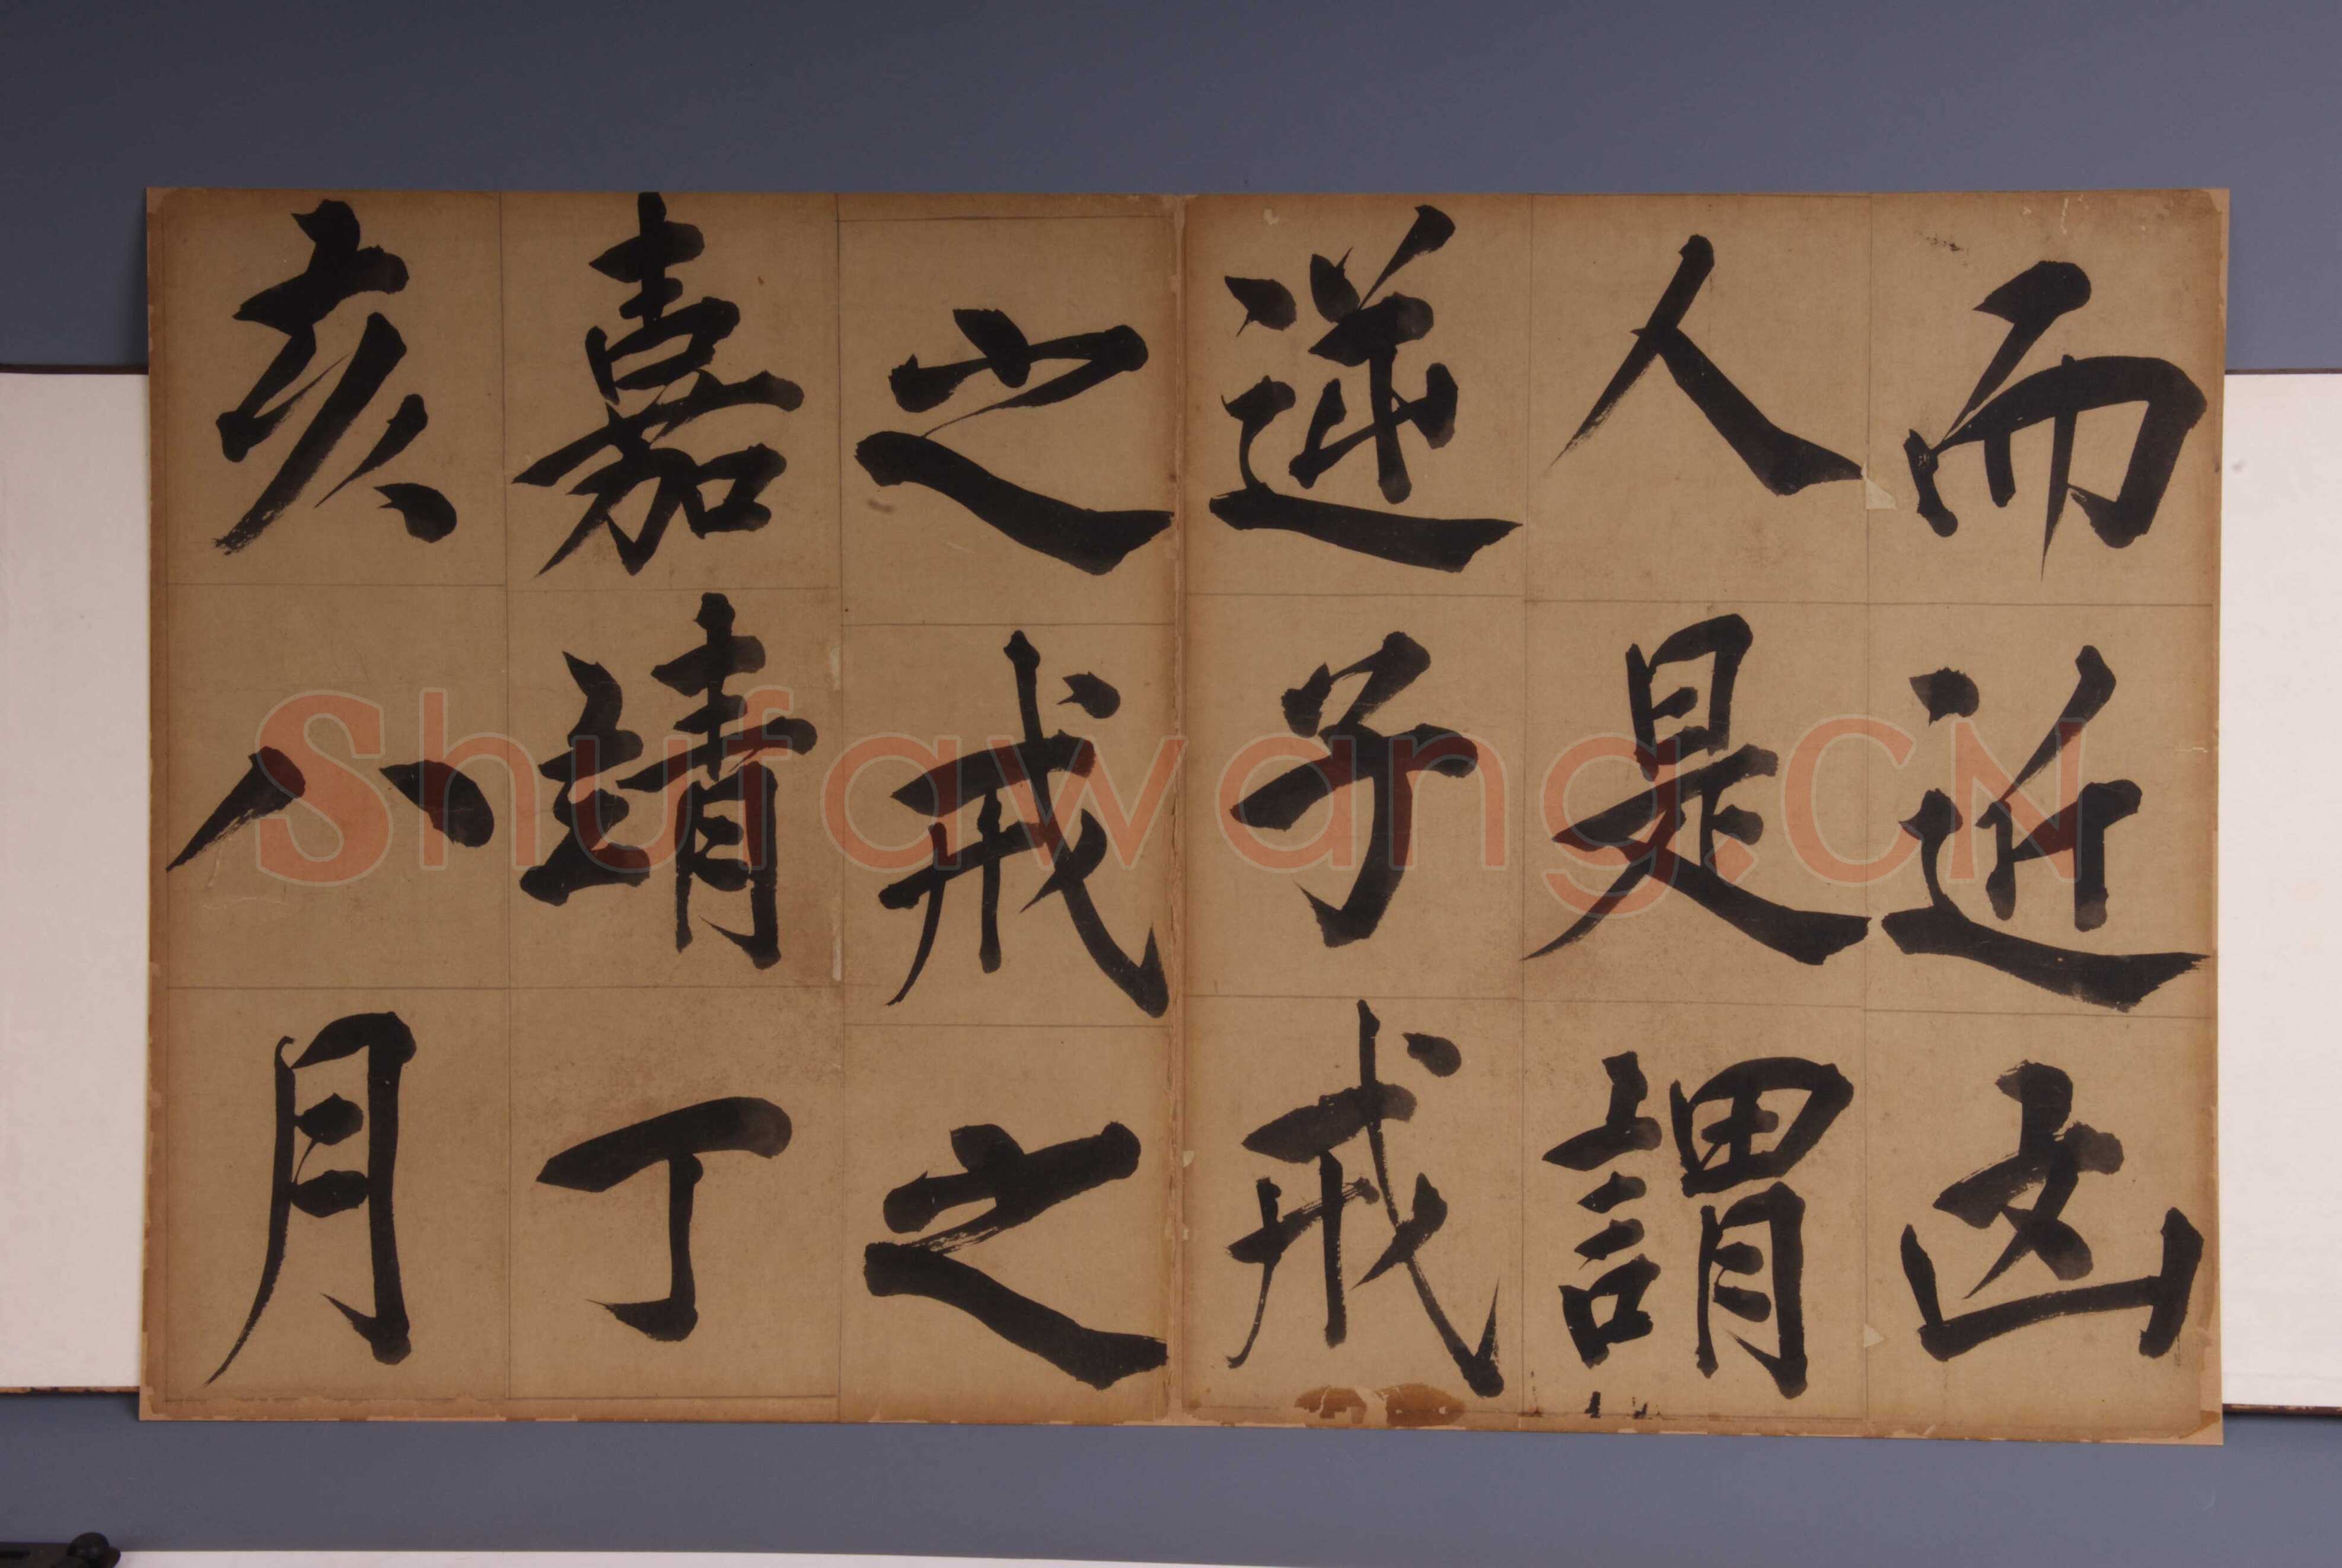 而近凶
人是謂
逆子戒
之戒之
嘉靖丁
亥八月
Shufawang.CN